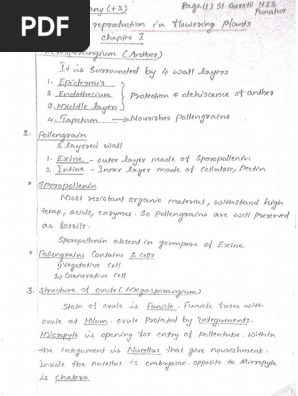 PDF
any (+2)
Page (1) St. Goretti HSS
Punalur
reproduction in flowering Plants
Chapter I
sporangium (Anther)
It is surrounded by 4 wall layers
1. Epidermis
2. Endothecium
3. Middle layer
Protection & dehiscence of anther
4. Tapetum → Nourishes Pollengrains
2. Pollengrain
2 layered wall
1. Exine - outer layer made of Sporopollenin
2. Intine - Inner layer made of cellulose, Pectin
* Sporopollenin
Most resistant organic material, withstand high
temp, acids, enzymes. So Pollengrains are well preserved
as fossils.
Sporopollenin absent in germpore of Exine.
* Pollengrains Contains 2 cells
1) Vegetative cell
2) Generative cell
3. Structure of ovule (Megasporangium)
Stalk of ovule is Funicle. Funicle fuses with
ovule at Hilum. ovule Protected by integuments.
Micropyle is opening for entry of Pollentube. Within
the integument is Nucellus that give nourishment.
Inside the nucellus is embryosac. opposite to Micropyle
is Chalaza